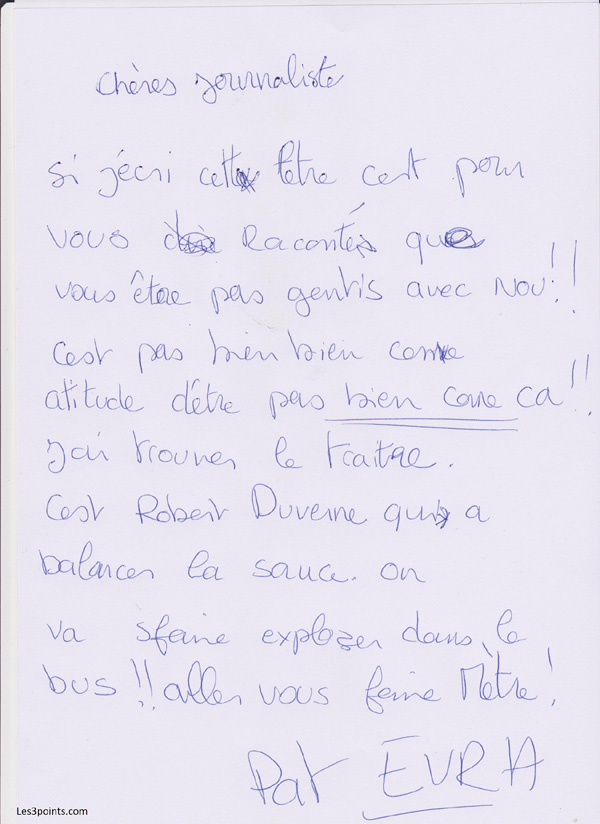 chères journaliste
si j'écri cette letre c'est pour
vous Racontés que
vous être pas gentis avec Nou!!
c'est pas bien bien come
atitude d'être pas bien come ca!!
j'ai trouver le traitre.
c'est Robert Duverne qui a
balancer la sauce. on
va sfaire explozer dans le
bus!! aller vous faire Mètre!
Pat EVRA
Les3points.com